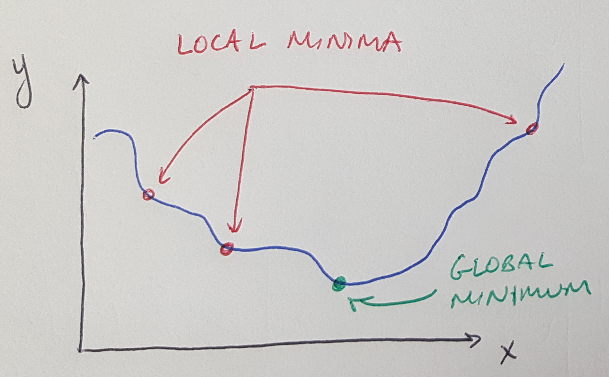 LOCAL MINIMA
y
GLOBAL
MINIMUM
x